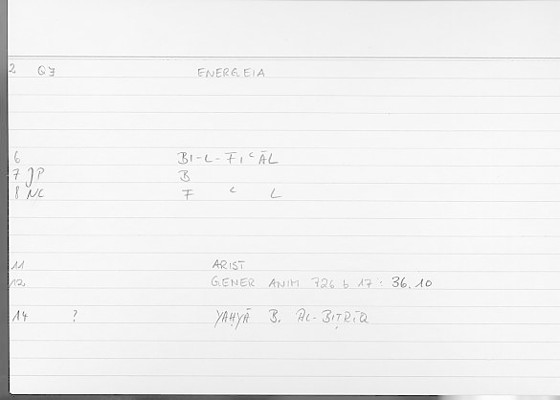 2 Q3 ENERGEIA
6 BI-L-FIʿĀL
7 JP B
8 NC F ʿ L
11 ARIST
12 GENER ANIM 726 b 17 : 36.10
14 ? YAḤYĀ B. AL-BIṬRĪQ